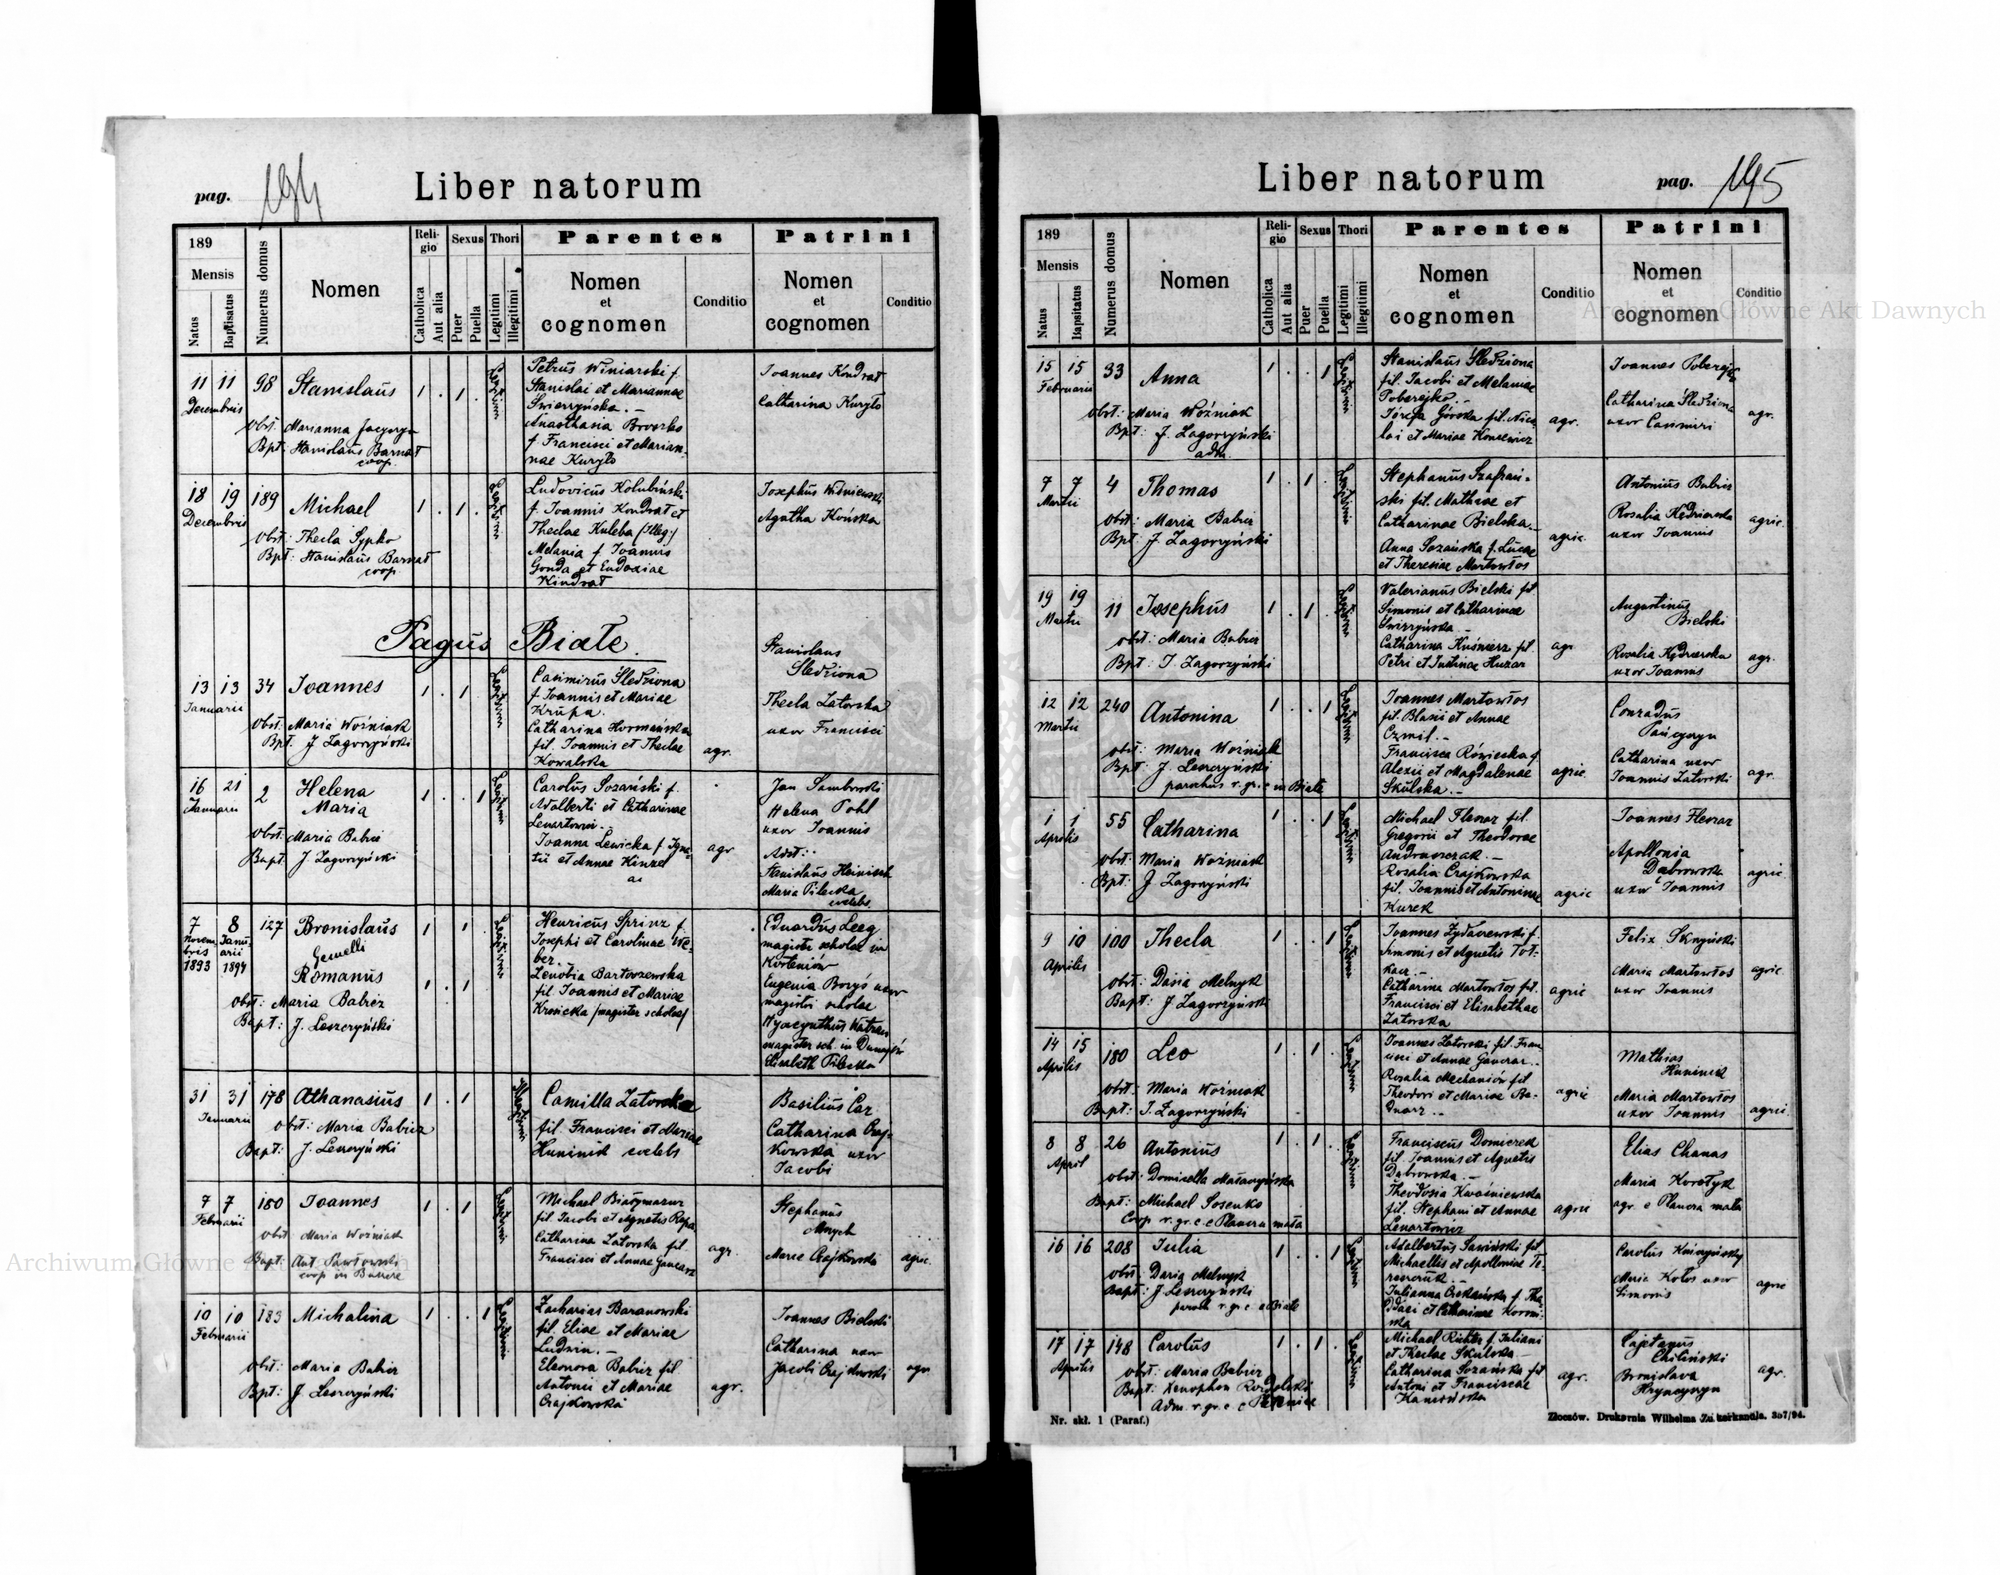 pag. 194
Liber natorum
189
Mensis
Natus
Baptisatus
Numerus domus
Nomen
Religio
Catholica
Aut alia
Sexus
Puer
Puella
Thori
Legitimi
Illegitimi
Parentes
Nomen et cognomen
Conditio
Patrini
Nomen et cognomen
Conditio
11 11 98 Stanislaus 1 . 1 . Legitimi
Decembris
Obst: Marianna
Bpt: Stanislaus Barnat
coop.
Petrus Winiarski f.
Stanislai et Mariannae
Świerzyńska. —
Anasthasia
f. Francisci et Marian-
nae Kuryło
Joannes Kondrat
Catharina Kuryło
18 19 189 Michael 1 . 1 . Legitimi
Decembris
Obst: Thecla Sypko
Bpt: Stanislaus Barnat
coop.
Ludovicus Kolubiński
f. Joannis Kondrat et
Theclae Kuleba (Illeg.)
Melania f. Joannis
Gonda et Eudoxiae
Kindrat
Josephus Wiśniewski
Agatha Końska
Pagus Białe.
13 13 34 Joannes 1 . 1 . Legitimi
Januarii
Obst: Maria Woźniak
Bpt. J. Zagorzyński
Casimirus Śledziona
f. Joannis et Mariae
Krupa.
Catharina Hormańska
fil. Joannis et Theclae
Kowalska
agr.
Stanislaus
Śledziona
Thecla Zatorska
uxor Francisci
16 21 2 Helena
Maria
1 . . 1 Legitimi
Januarii
Obst: Maria Babicz
Bapt. J. Zagorzyński
Carolus Sozański f.
Adalberti et Catharinae
Lenartowicz. —
Joanna Lewicka f. Igna-
tii et Annae Kinzel
agr
Jan Samborski
Helena Pohl
uxor Joannis
Adst:
Stanislaus Heinisch
Maria Pilecka
coelebs.
7 8 127 Bronislaus 1 1 Legitimi
Novem- Janu-
bris arii
1893 1894
Gemelli
Romanus 1 . 1
Obst: Maria Babicz
Bapt: J. Leszczyński
Henricus Sprinz f.
Josephi et Carolinae We-
ber. —
Zenobia Bartoszewska
fil. Joannis et Mariae
Krosicka (magister scholae)
Eduardus Leeg
magister scholae in
Korteniów
Eugenia Boryś uxor
magistri scholae
Hyacynthus
magister sch. in Dunajów
Elisabeth Pilecka
31 31 178 Athanasius 1 . 1 Illegitimi
Januarii
Obst: Maria Babicz
Bapt: J. Leszczyński
Camilla Zatorska
fil. Francisci et Mariae
Huninik coelebs
Basilius Car
Catharina Czaj-
kowska uxor
Jacobi
7 7 180 Joannes 1 . 1 Legitimi
Februarii
Obst: Maria Woźniak
Bapt: Ant. Pawłowski
coop in
Michael Białymazur
fil. Jacobi et Agnetis Rapa
Catharina Zatorska fil.
Francisci et Annae
agr.
Stephanus
Mnych
Marie Czajkowski
agric.
10 10 183 Michalina 1 . . 1 Legitimi
Februarii
Obst: Maria Babicz
Bpt: J. Leszczyński
Zacharias Baranowski
fil. Eliae et Mariae
Ludwin. —
Eleonora Babicz fil.
Antonii et Mariae
Czajkowska
agr.
Joannes Bielski
Catharina uxor
Jacobi Czajkowski
agr
Liber natorum
pag. 195
189
Mensis
Natus
Bapsitatus
Numerus domus
Nomen
Religio
Catholica
Aut alia
Sexus
Puer
Puella
Thori
Legitimi
Illegitimi
Parentes
Nomen et cognomen
Conditio
Patrini
Nomen et cognomen
Conditio
15 15 33 Anna 1 . . 1 Legitimi
Februarii
Obst: Maria Woźniak
Bpt: J. Zagorzyński
adm.
Stanislaus Śledziona
fil. Jacobi et Melaniae
Poberejko. —
Józefa Górska fil. Nico-
lai et Mariae Koncewicz
agr.
Joannes Poberejko
Catharina Śledziona
uxor Casimiri
agr.
7 7 4 Thomas 1 . 1 . Legitimi
Martii
Obst: Maria Babicz
Bpt J. Zagorzyński
Stephanus Szafrań-
ski fil. Mathiae et
Catharinae Bielska. —
Anna Sozańska f. Lucae
et Theresiae Martowłos
agric.
Antonius Babicz
Rosalia Kędzierska
uxor Joannis
agric.
19 19 11 Josephus 1 . 1 . Legitimi
Martii
Obst: Maria Babicz
Bpt: J. Zagorzyński
Valerianus Bielski fil.
Simonis et Catharinae
Świrzyńska —
Catharina Kuśnierz fil.
Petri et Justinae Huzar
agr
Augustinus
Bielski
Rosalia Kędzierska
uxor Joannis
agr.
12 12 240 Antonina 1 . . 1 Legitimi
Martii
Obst: Maria Woźniak
Bpt: J. Leszczyński
parochus r. gr. c in Białe
Joannes Martowłos
fil. Blasii et Annae
Czmil. —
Francisca Rówiecka f.
Alexii et Magdalenae
Skulska. —
agric.
Conradus
Catharina uxor
Joannis Zatorski
agr.
1 1 55 Catharina 1 . . 1 Legitimi
Aprilis
Obst: Maria Woźniak
Bpt: J. Zagorzyński
Michael Flenar fil.
Gregorii et Theodorae
Andraszczak. —
Rosalia Czajkowska
fil. Joannis et Antoninae
Kurek
agric
Joannes Flenar
Apollonia
Dąbrowska
uxor Joannis
agric.
9 10 100 Thecla 1 . . 1 Legitimi
Aprilis
Obst: Dasia Melnyk
Bapt: J. Zagorzyński
Joannes Żydaczewski f.
Simonis et Agnetis
Catharina Martowłos fil.
Francisci et Elisabethae
Zatorska
agric
Felix Skrzyński
Maria Martowłos
uxor Joannis
agric.
14 15 180 Leo 1 . 1 . Legitimi
Aprilis
Obst: Maria Woźniak
Bapt: J. Zagorzyński
Joannes Zatorski fil. Fran-
cisci et Annae
Rosalia Mechaniów fil
Theodori et Mariae
agric
Mathias
Huninik
Maria Martowłos
uxor Joannis
agric.
8 8 26 Antonius 1 . 1 . Legitimi
April
Obst: Domicella
Bapt: Michael Sosenko
Coop r. gr. c. e Plauera mała
Franciscus Domierek
fil. Joannis et Agnetis
Dąbrowska. —
Theodosia Kwaśniewska
fil. Stephani et Annae
Lenartowicz
agric
Elias Chanas
Maria Korołyk
agr. e Plauera mała
16 16 208 Julia 1 . . 1 Legitimi
Obst: Daria Melnyk
Bapt: J. Leszczyński
paroch r. gr. c e Białe
Adalbertus Sawiński fil.
Michaelis et Apolloniae
Julianna
et Catharinae
Carolus
Maria Kołos uxor
Simonis
agric
17 17 148 Carolus 1 . 1 . Legitimi
Aprilis
Obst: Maria Babicz
Bapt. Xenophon
Adm. r. gr. c. e
Michael Richter f. Juliani
et Theclae Skulska
Catharina Sozańska fil
Antoni et Franciscae
agr.
Cajetanus
Chiliński
Bronislava
Hryncyszyn
agr.
Nr. skł. 1 (Paraf.)
Złoczów. Drukarnia Wilhelma Zukerkandla. 357/94.
Archiwum Główne Akt Dawnych
Archiwum Główne Akt Dawnych